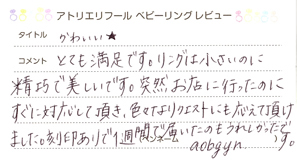 アトリエリフール ベビーリング レビュー
タイトル かわいい★
コメント とても満足です。リングは小さいのに
精巧で美しいです。突然お店に行ったのに
すぐに対応して頂き、色々なリクエストにも応えて頂け
ました。刻印ありで1週間で届いたのもうれしかったで
す。
aobgyn